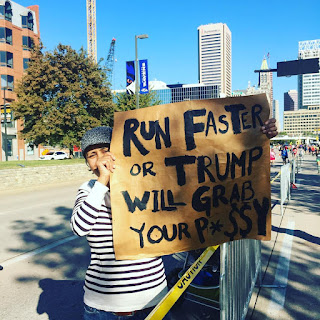 RUN FASTER
OR TRUMP
WILL GRAB
YOUR P*$$Y
CAUTION